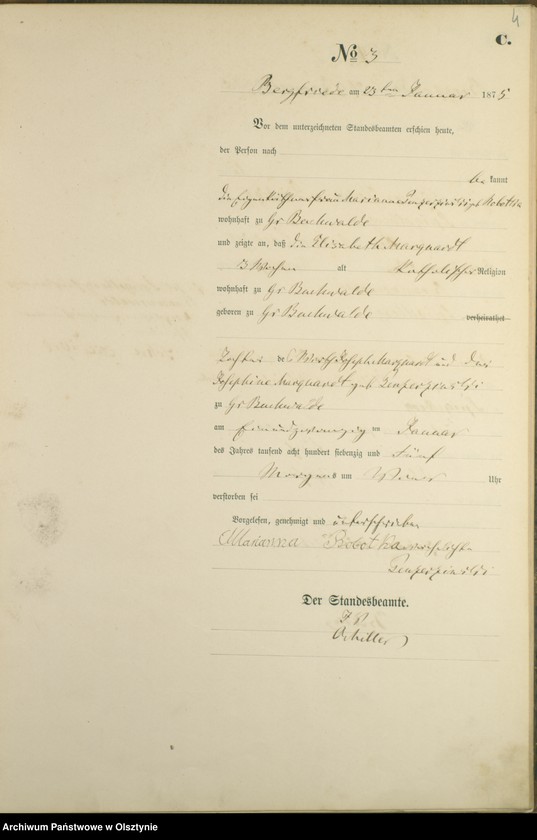 4
C.
No 3
Bergfriede am 23ten Januar 1875
Vor dem unterzeichneten Standesbeamten erschien heute,
der Person nach
be kannt
die Frau Marianna geb Robotka
wohnhaft zu Gr Buchwalde
und zeigte an, daß die Elisabeth Marquardt
3 Wochen alt Katholischer Religion
wohnhaft zu Gr Buchwalde
geboren zu Gr Buchwalde verheirathet
Tochter des Joseph Marquardt und der
Josephine Marquardt geb
zu Gr Buchwalde
am Einundzwanzig ten Januar
des Jahres tausend acht hundert siebenzig und Fünf
Morgens um Uhr
verstorben sei
Vorgelesen, genehmigt und unterschrieben
Marianna Robotka
Der Standesbeamte.
Archiwum Państwowe w Olsztynie